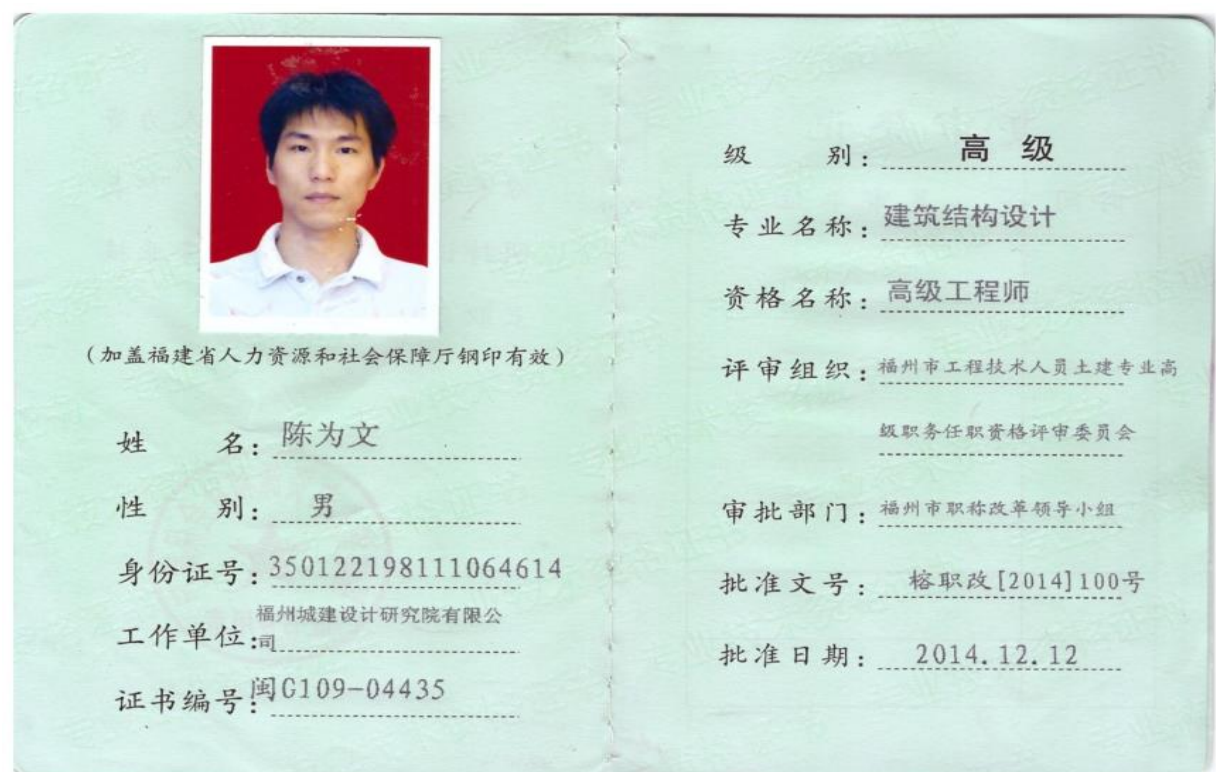 (加盖福建省人力资源和社会保障厅钢印有效)
姓 名：陈为文
性 别：男
身份证号：350122198111064614
工作单位：福州城建设计研究院有限公
司
证书编号：闽G109-04435
级 别：高 级
专业名称：建筑结构设计
资格名称：高级工程师
评审组织：福州市工程技术人员土建专业高
级职务任职资格评审委员会
审批部门：福州市职称改革领导小组
批准文号：榕职改[2014]100号
批准日期：2014.12.12